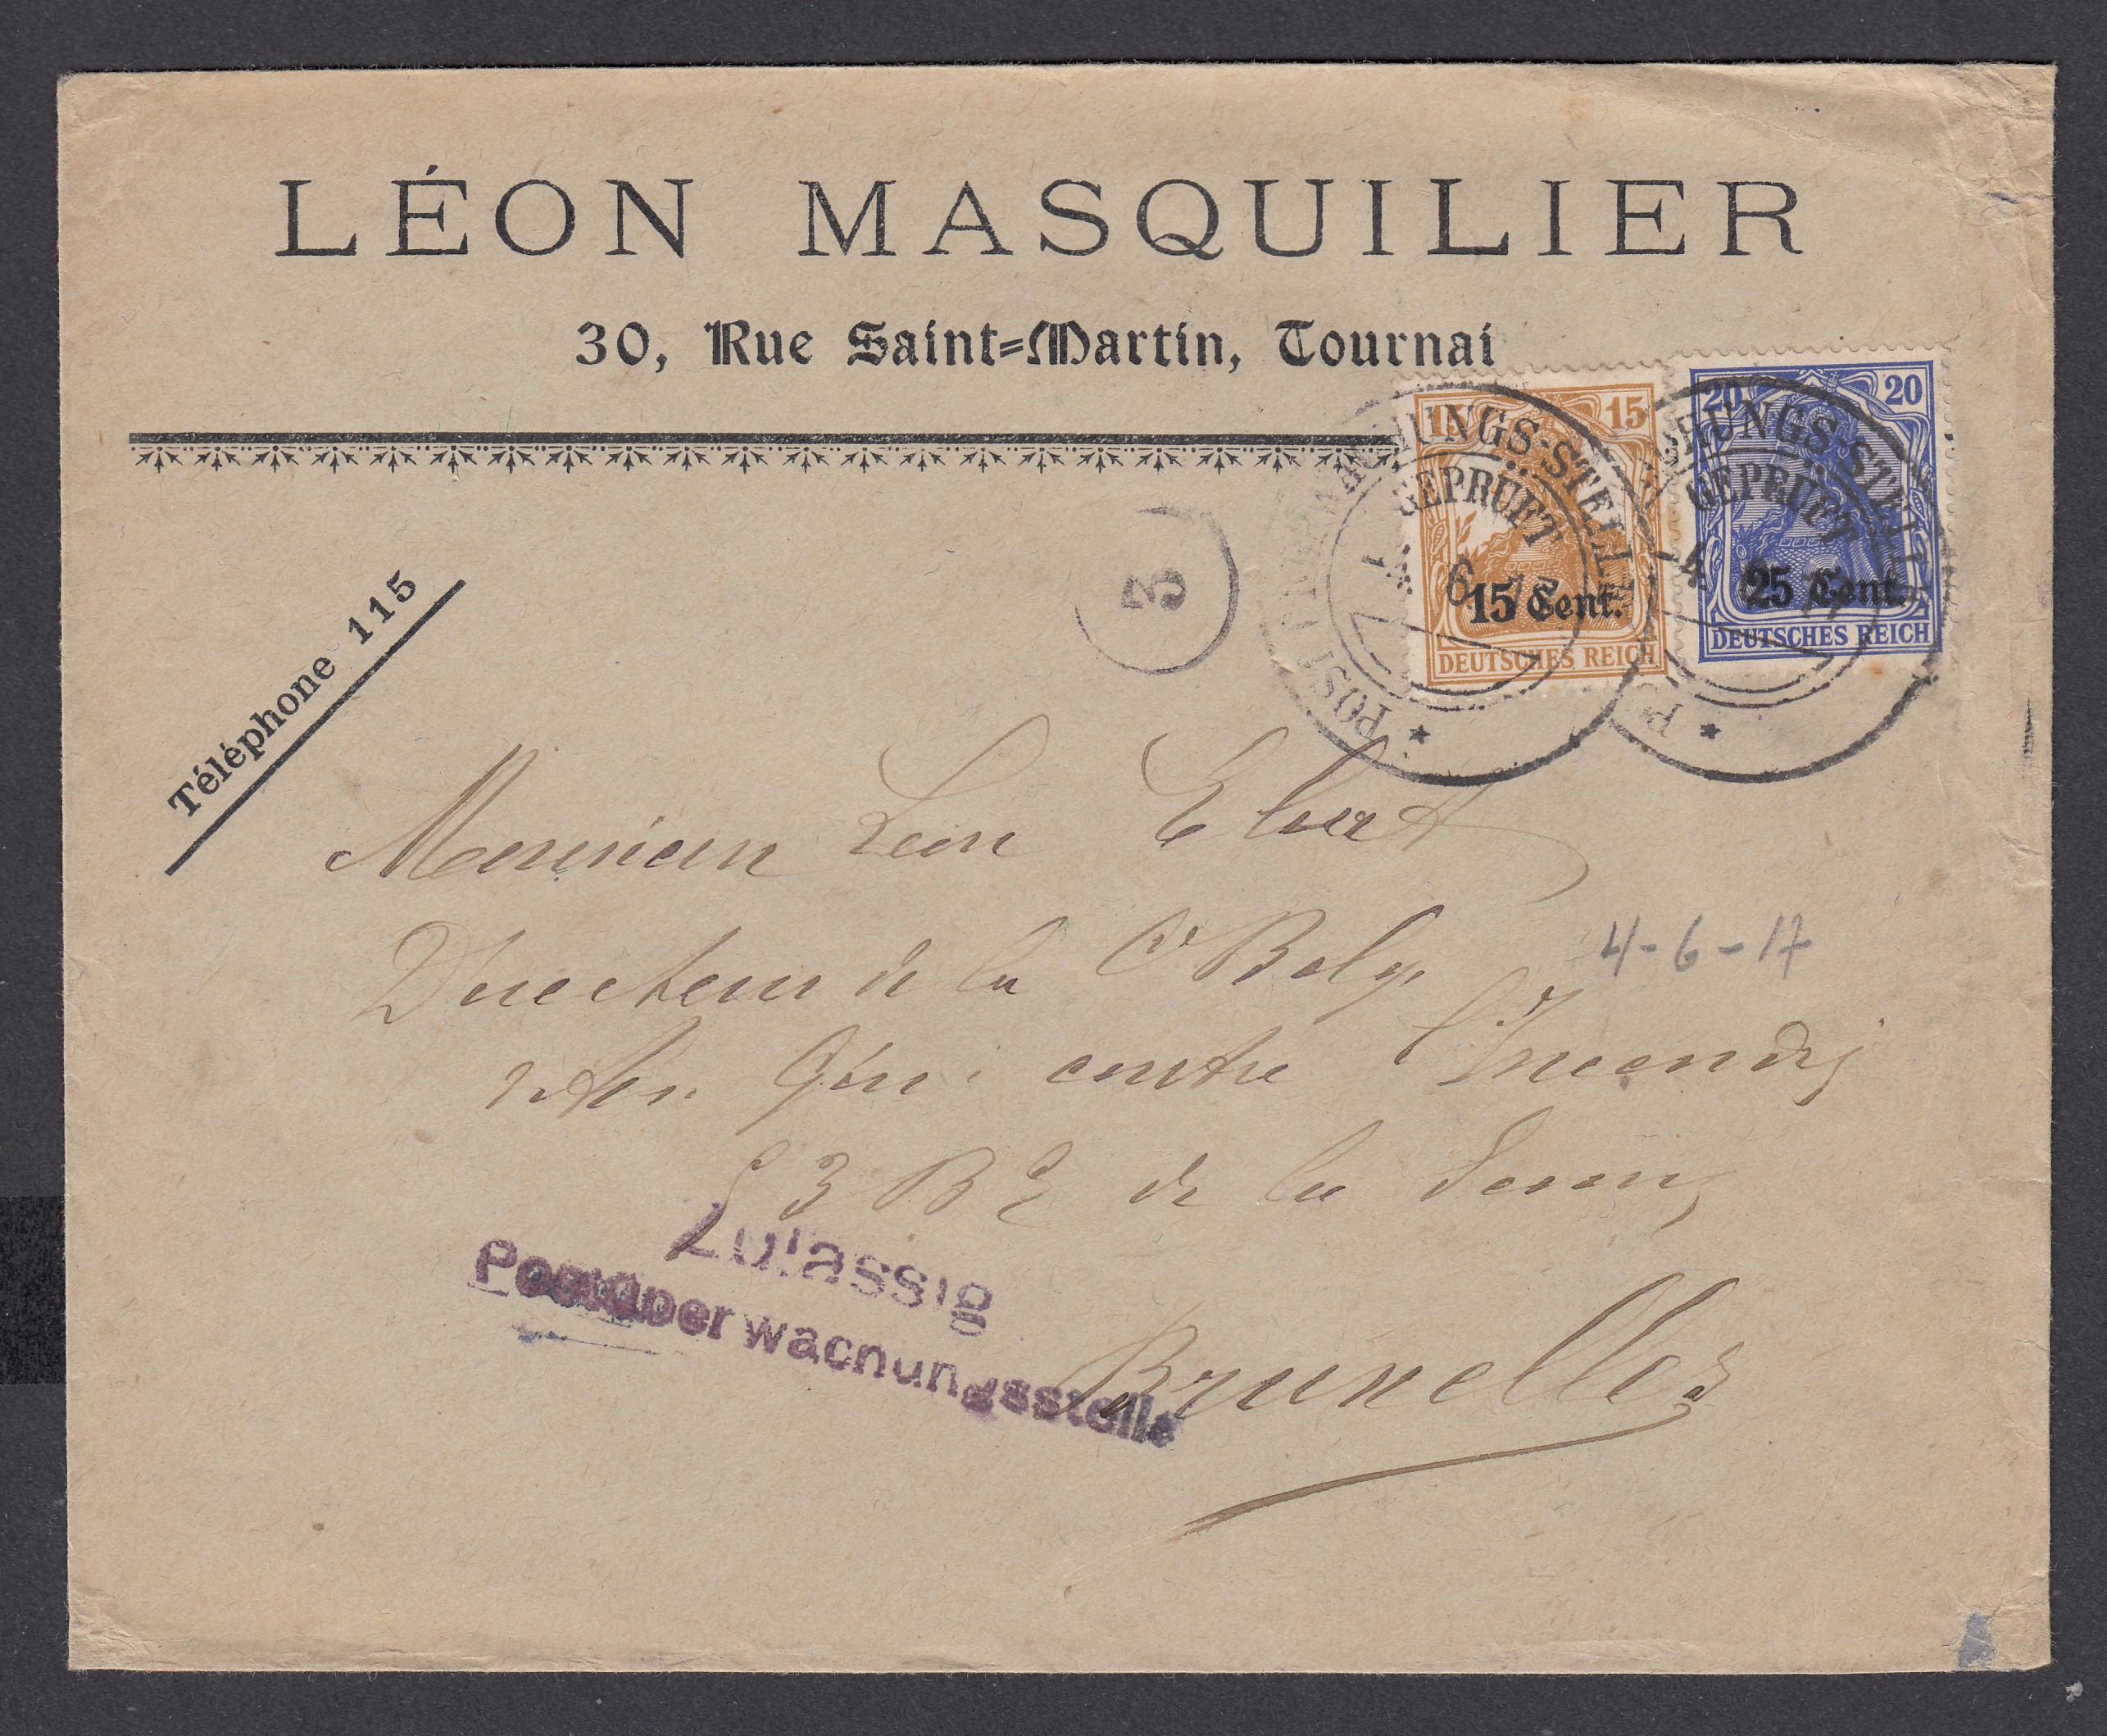 LÉON MASQUILIER
30, Rue Saint-Martin, Tournai
15 15
15 Cent.
DEUTSCHES REICH
20 20
25 Cent.
DEUTSCHES REICH
POSTÜBERWACHUNGS-STELLE
GEPRÜFT
CHUNGS-STELLE
GEPRÜFT
3
Téléphone 115
Monsieur Léon
Directeur de la Cie Belge
4-6-17
contre l'Incendie
53 Bd de la Senne
Zulässig
Postüberwachungsstelle
Bruxelles